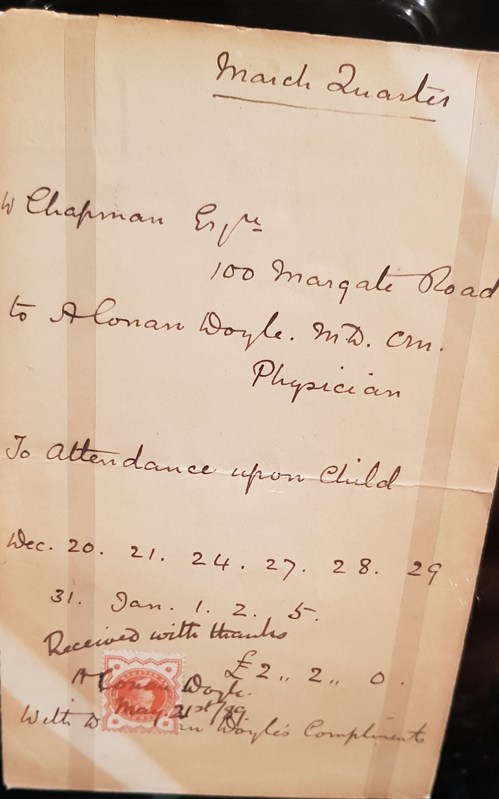 March Quarter
W Chapman Esqre
100 Margate Road
to A Conan Doyle. M.D. CM.
Physician
To attendance upon Child
Dec. 20. 21. 24. 27. 28. 29
31. Jan. 1. 2. 5.
Received with thanks
£2 ,, 2 ,, 0.
A Conan Doyle.
May 21st/89
With Doyle's Compliments